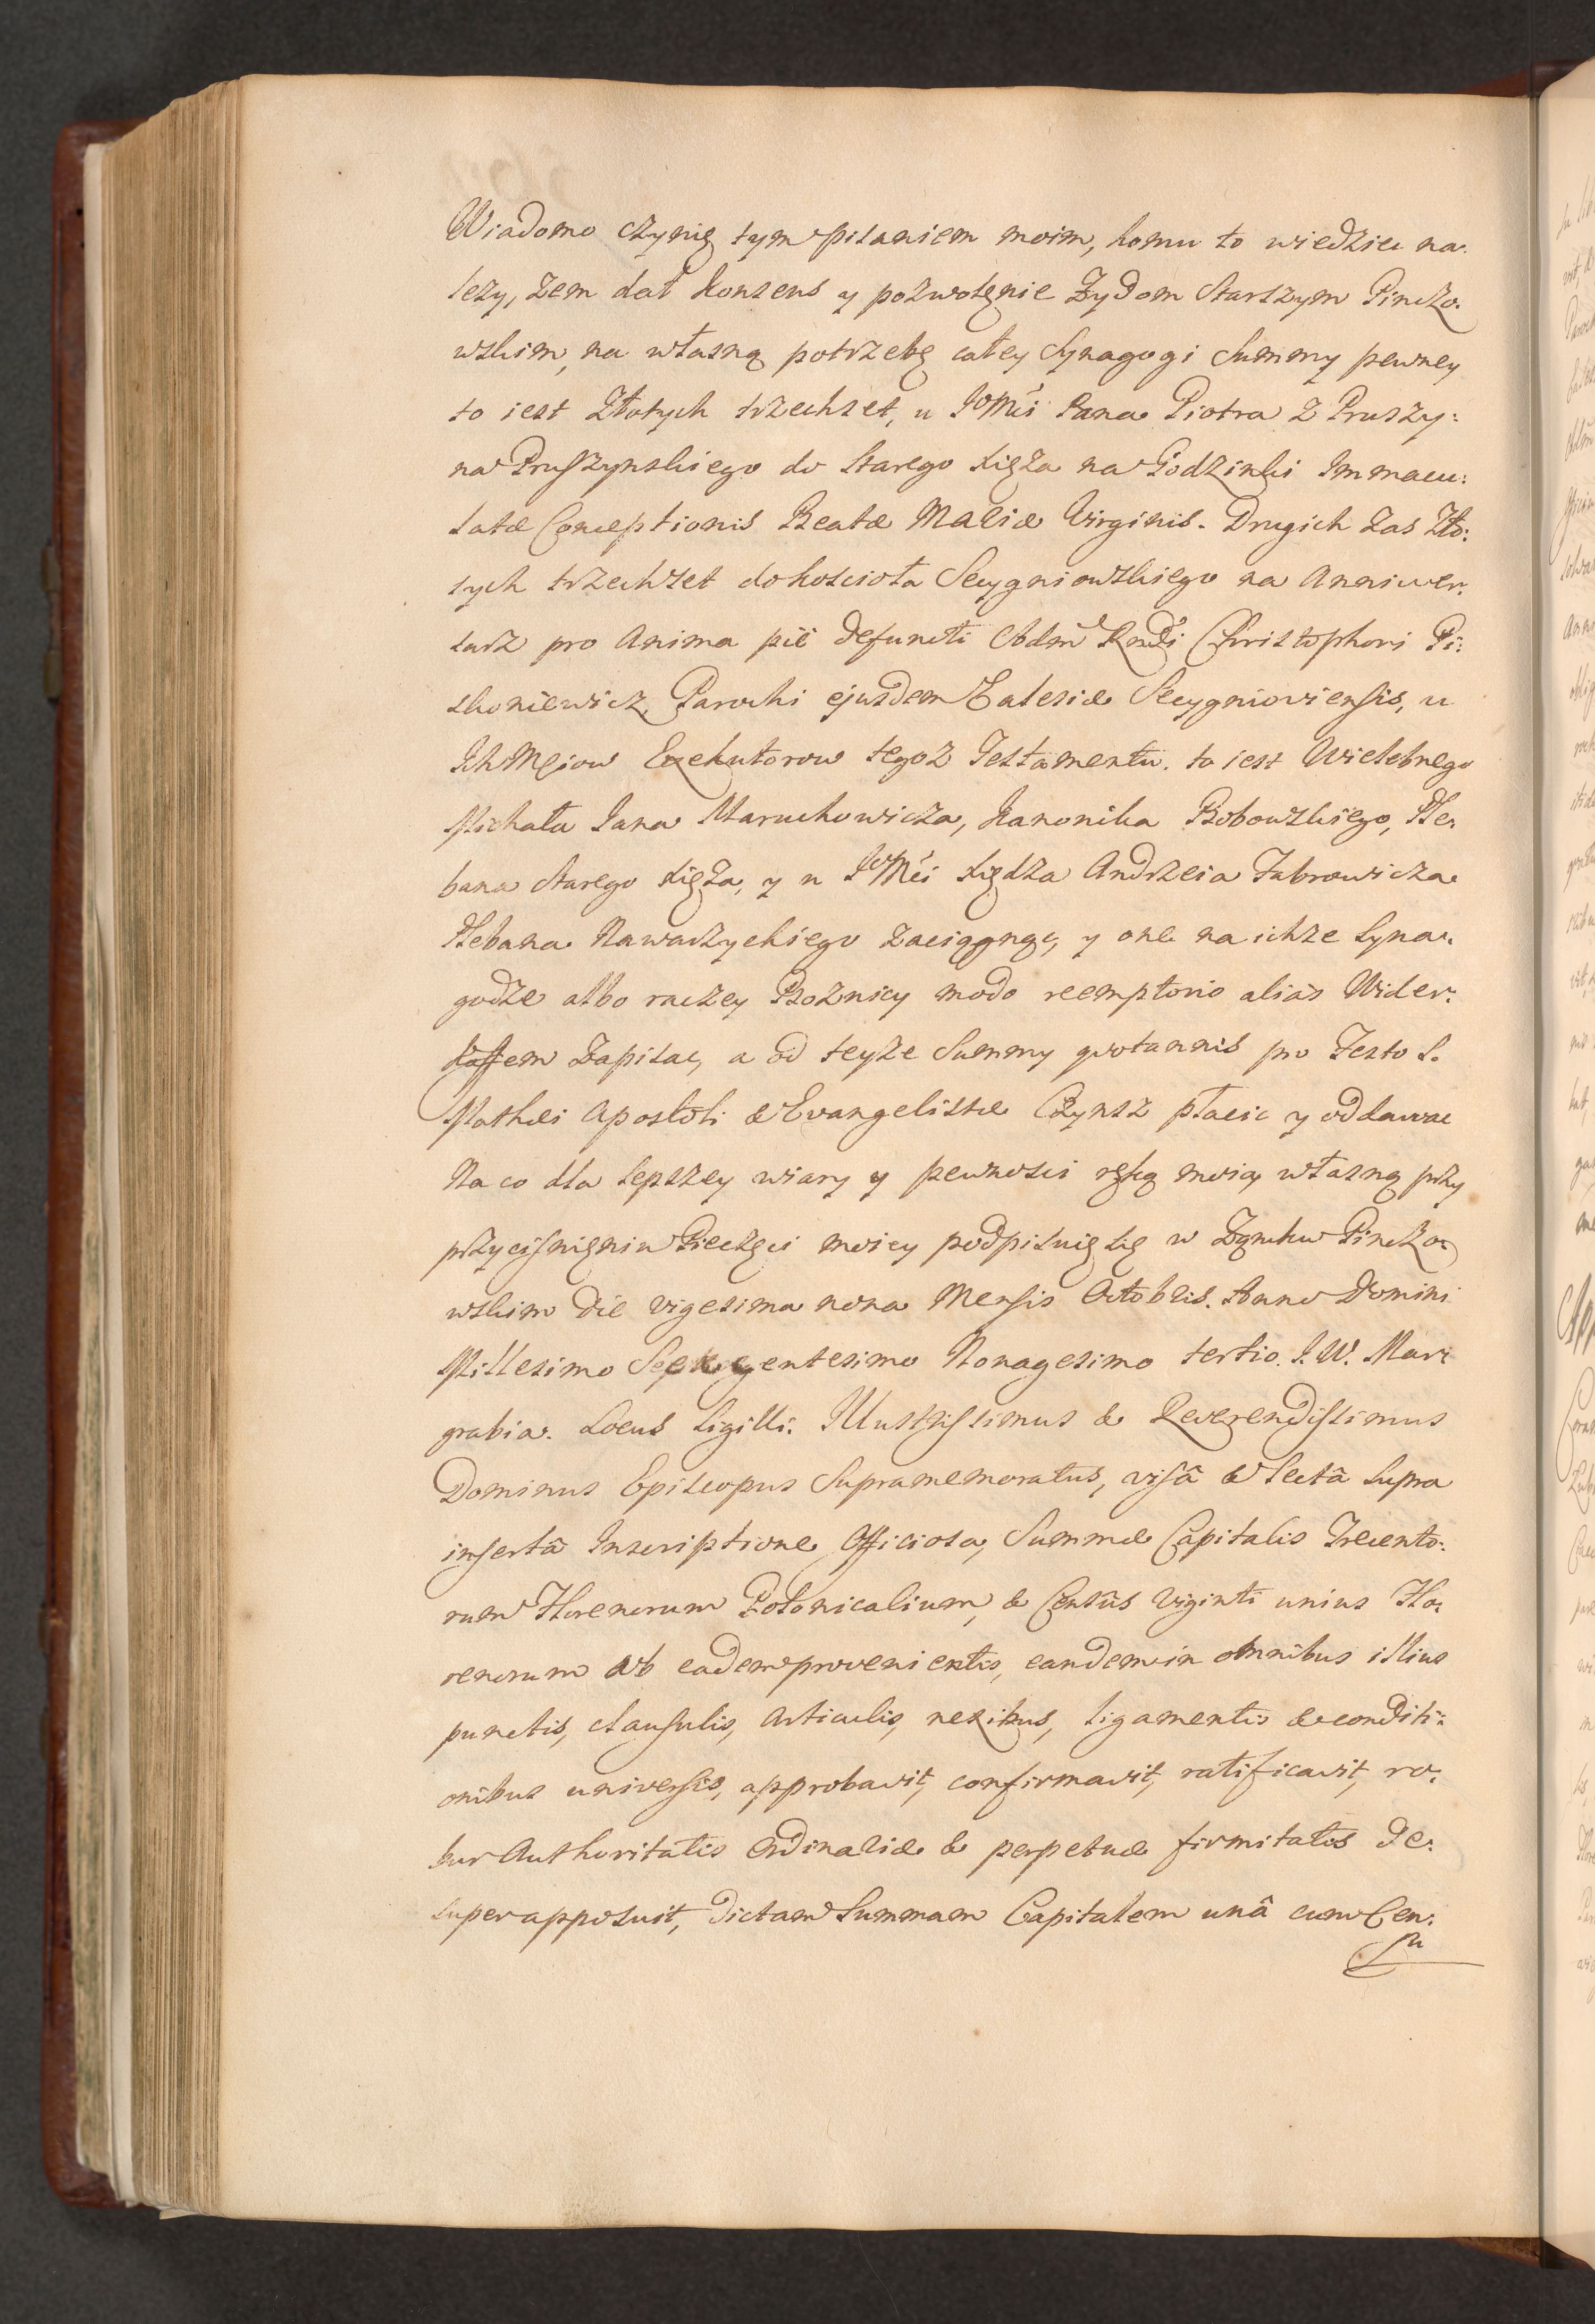 Wiadomo czynię tym pisaniem moim, komu to wiedziec na:
lezy, zem dał konsens y pozwolęnie Zydom Starszym Pinczo:
wskim, na własną potrzebę całey Synagogi Summy pewney
to iest Złotych trzechset, u JoMci Pana Piotra z Pruszy:
na Pruszynskiego do Starego Xięża na Godzinki Immacu:
latæ Conceptionis Beatæ Mariæ Virginis. Drugich zas Zło:
tych trzechset do koscioła Secygniowskiego na Anniwer:
sarz pro Anima pie defuncti Adm Rndi Christophori Pi:
skoniewicz Parochi ejusdem Eccl̃esiæ Secygnioviensis, u
IchMciow Exekutorow tegoz Testamentu. to iest Wielebnego
Michała Jana Maruchowicza, Kanonika Bobowskiego, Ple:
bana Starego Xięża, y u JoMci Xiędza Andrzeia Fabrowicza
Plebana Nawarzyckiego zaciągnąc, y one na ichze Syna:
godze albo raczey Boznicy modo reemptorio alias Wider:
kaffem Zapisac, a od teyze Summy quotannis pro Festo S.
Mathæi Apostoli & Evangelistæ Czynsz płacic y oddawac
Na co dla lepszey wiary y pewnosci ręką moią własną przy
przycisnięniu Pieczęci moiey podpisuię się w Zamku Pinczo:
wskim Die vigesima nona Mensis Octobris. Anno Domini
Millesimo Septingentesimo Nonagesimo tertio. J. W. Mar:
grabia. Locus Sigilli. Illustrissimus & Reverendissimus
Dominus Episcopus Supramemoratus, visâ & lectâ supra
insertâ Inscriptione Officiosa, Summæ Capitalis Trecento:
rum Florenorum Polonicalium, & Censûs Viginti unius Flo:
renorum ab eadem provenientis, eandem in omnibus illius
punctis, clausulis, Articulis, nexibus, ligamentis & conditi:
onibus universis, approbavit, confirmavit, ratificavit, ro:
bur Authoritatis Ordinariæ & perpetuæ firmitatis de:
super apposuit, Dictam Summam Capitalem unâ cum Cen:
su